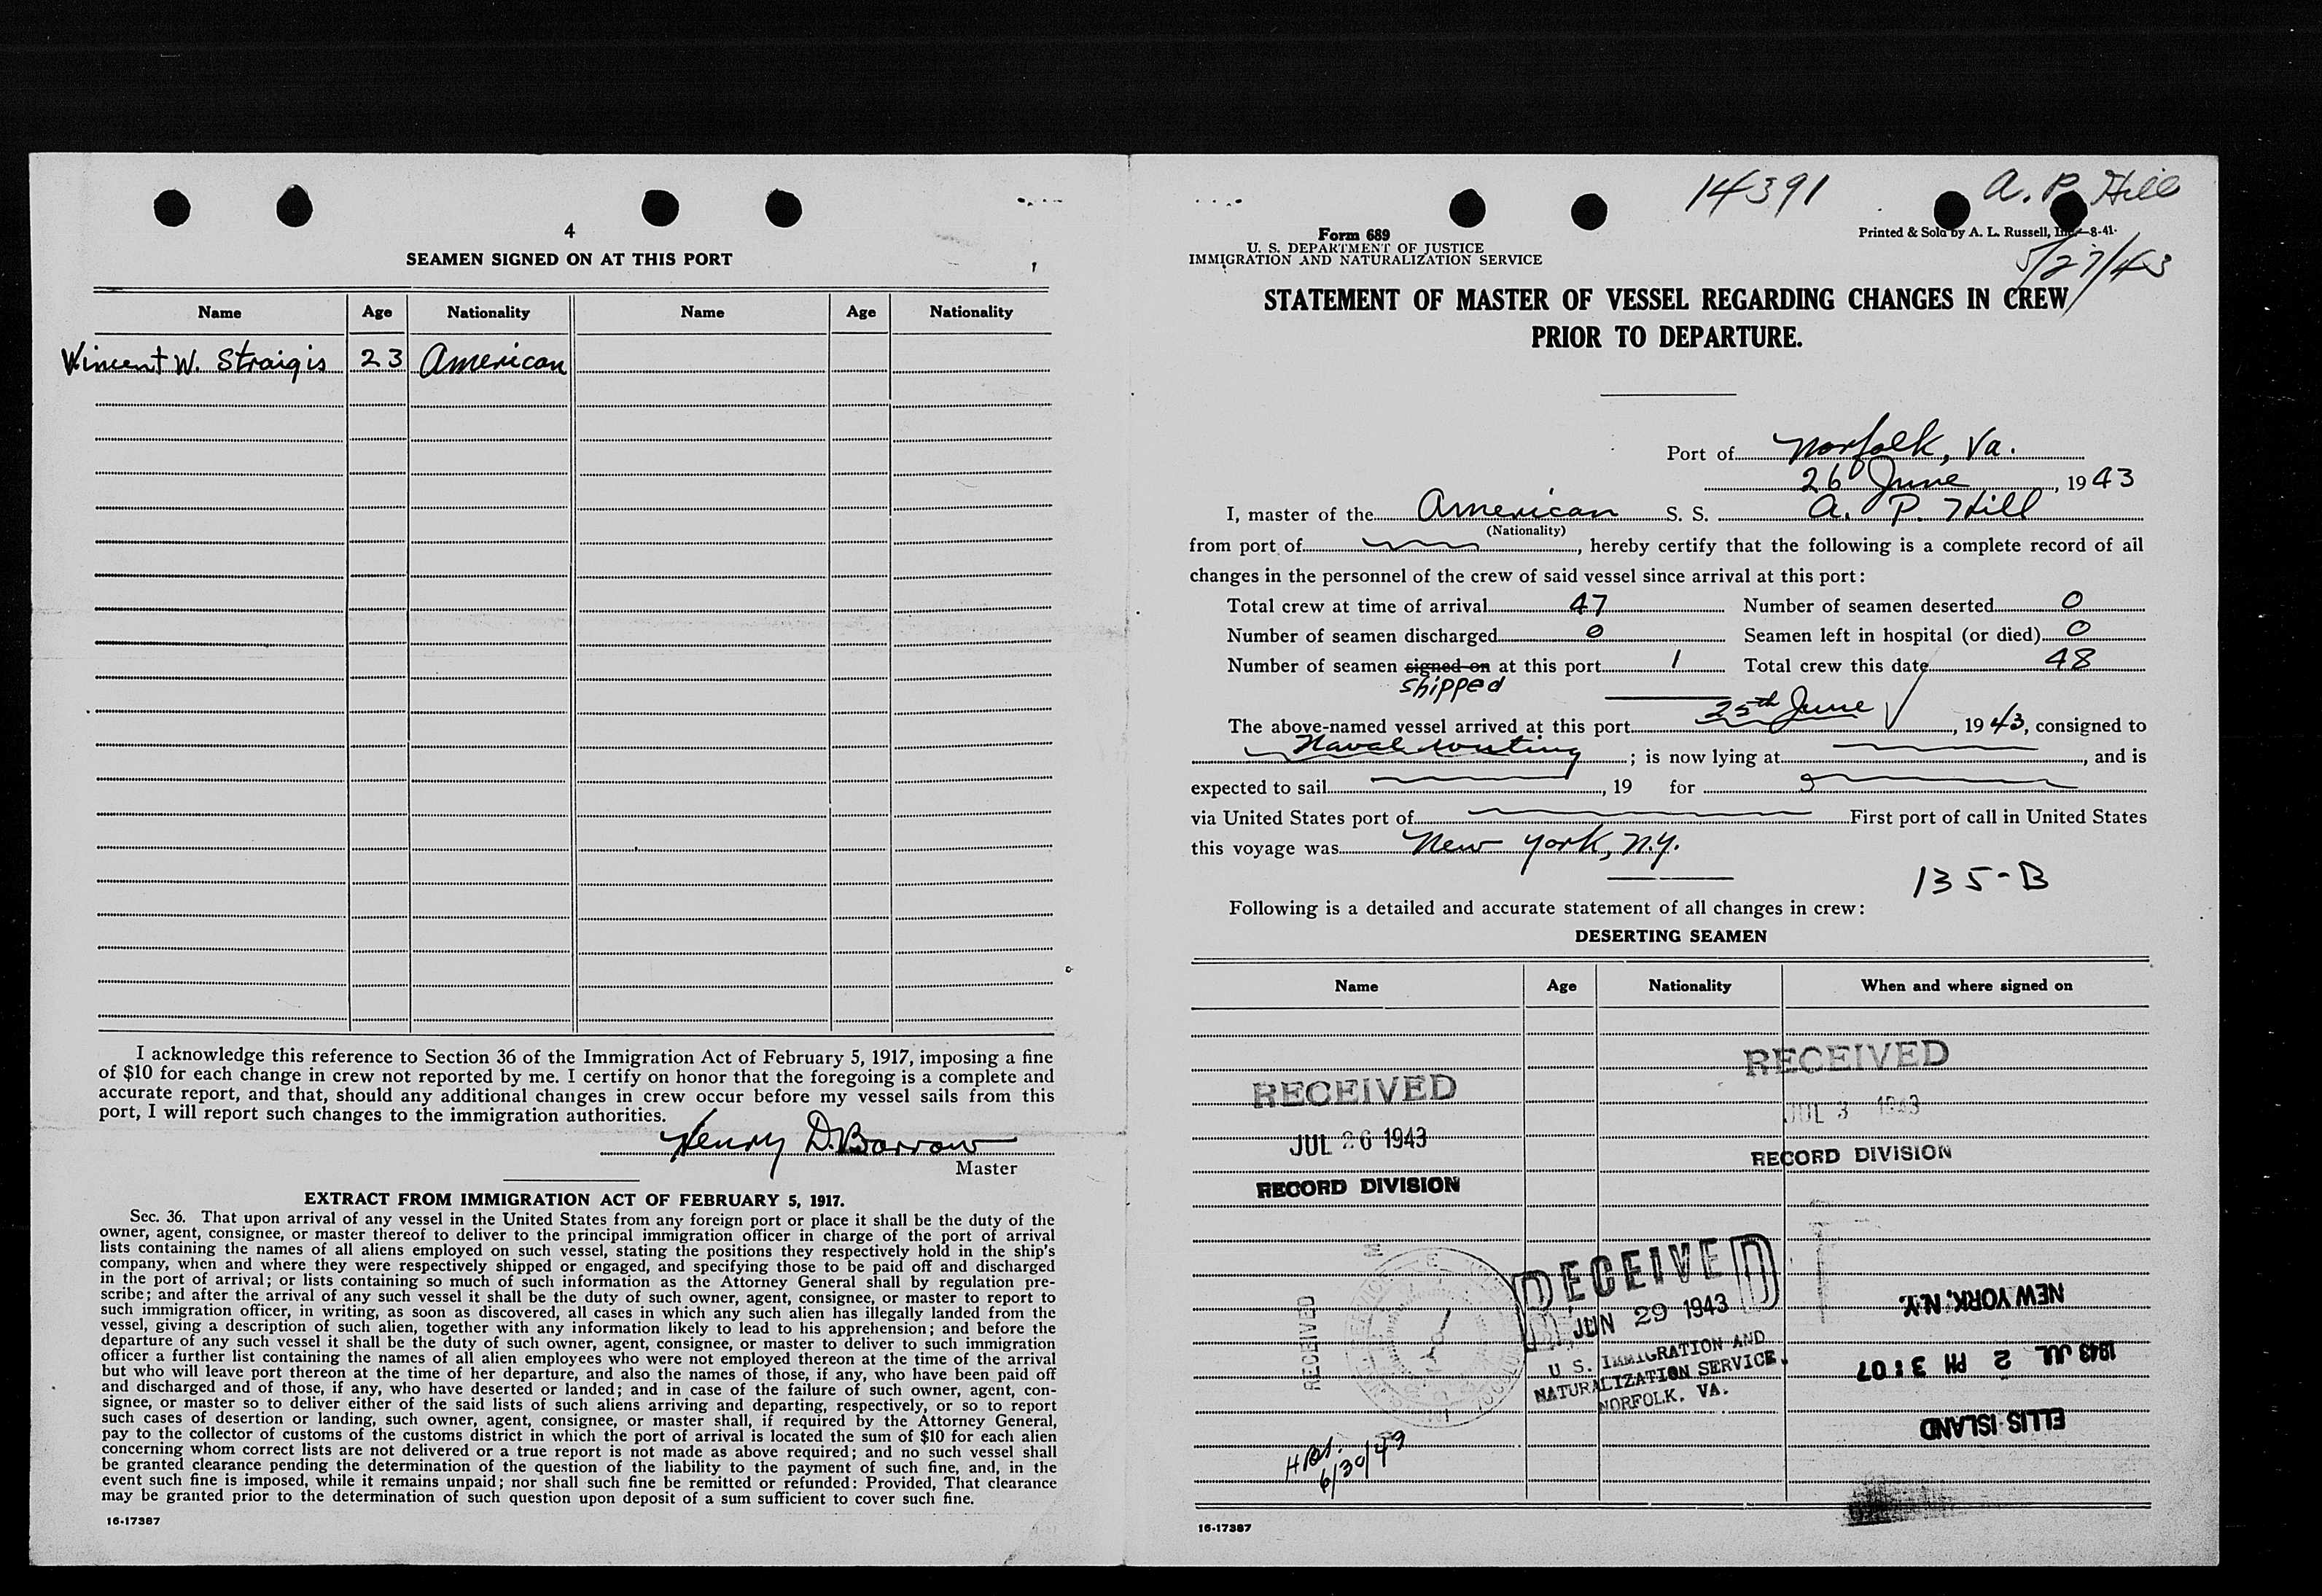 4
SEAMEN SIGNED ON AT THIS PORT
Name Age Nationality Name Age Nationality
Vincent W. Straigis 23 American
I acknowledge this reference to Section 36 of the Immigration Act of February 5, 1917, imposing a fine
of $10 for each change in crew not reported by me. I certify on honor that the foregoing is a complete and
accurate report, and that, should any additional changes in crew occur before my vessel sails from this
port, I will report such changes to the immigration authorities.
Henry D. Barrow
Master
EXTRACT FROM IMMIGRATION ACT OF FEBRUARY 5, 1917.
Sec. 36. That upon arrival of any vessel in the United States from any foreign port or place it shall be the duty of the
owner, agent, consignee, or master thereof to deliver to the principal immigration officer in charge of the port of arrival
lists containing the names of all aliens employed on such vessel, stating the positions they respectively hold in the ship's
company, when and where they were respectively shipped or engaged, and specifying those to be paid off and discharged
in the port of arrival; or lists containing so much of such information as the Attorney General shall by regulation pre-
scribe; and after the arrival of any such vessel it shall be the duty of such owner, agent, consignee, or master to report to
such immigration officer, in writing, as soon as discovered, all cases in which any such alien has illegally landed from the
vessel, giving a description of such alien, together with any information likely to lead to his apprehension; and before the
departure of any such vessel it shall be the duty of such owner, agent, consignee, or master to deliver to such immigration
officer a further list containing the names of all alien employees who were not employed thereon at the time of the arrival
but who will leave port thereon at the time of her departure, and also the names of those, if any, who have been paid off
and discharged and of those, if any, who have deserted or landed; and in case of the failure of such owner, agent, con-
signee, or master so to deliver either of the said lists of such aliens arriving and departing, respectively, or so to report
such cases of desertion or landing, such owner, agent, consignee, or master shall, if required by the Attorney General,
pay to the collector of customs of the customs district in which the port of arrival is located the sum of $10 for each alien
concerning whom correct lists are not delivered or a true report is not made as above required; and no such vessel shall
be granted clearance pending the determination of the question of the liability to the payment of such fine, and, in the
event such fine is imposed, while it remains unpaid; nor shall such fine be remitted or refunded: Provided, That clearance
may be granted prior to the determination of such question upon deposit of a sum sufficient to cover such fine.
16-17387
14391 A. P. Hill
Form 689
Printed & Sold by A. L. Russell, Inc.—8-41
U. S. DEPARTMENT OF JUSTICE
IMMIGRATION AND NATURALIZATION SERVICE
5/27/43
STATEMENT OF MASTER OF VESSEL REGARDING CHANGES IN CREW
PRIOR TO DEPARTURE.
Port of Norfolk, Va.
26 June, 1943
I, master of the American S. S. A. P. Hill
(Nationality)
from port of , hereby certify that the following is a complete record of all
changes in the personnel of the crew of said vessel since arrival at this port:
Total crew at time of arrival 47 Number of seamen deserted 0
Number of seamen discharged 0 Seamen left in hospital (or died) 0
Number of seamen signed on at this port 1 Total crew this date 48
shipped
The above-named vessel arrived at this port 25th June, 1943, consigned to
Naval Routing ; is now lying at , and is
expected to sail , 19 for
via United States port of First port of call in United States
this voyage was New York, N.Y.
135-B
Following is a detailed and accurate statement of all changes in crew:
DESERTING SEAMEN
Name Age Nationality When and where signed on
RECEIVED
JUL 3 1943
RECORD DIVISION
RECEIVED
JUL 26 1943
RECORD DIVISION
RECEIVED
RECEIVED
JUN 29 1943
U. S. IMMIGRATION AND
NATURALIZATION SERVICE.
NORFOLK, VA.
ELLIS ISLAND
1943 JUL 2 PM 3:07
NEW YORK, N.Y.
6/30/43
16-17387